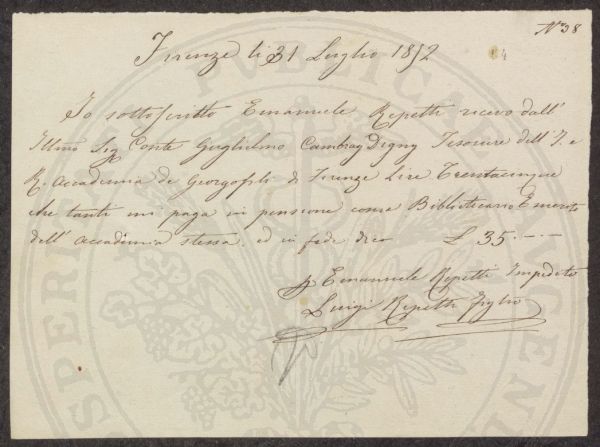 Nº 38
Firenze li 31 Luglio 1852
Io sottoscritto Emanuele Repetti ricevo dall'
Illmo Sig Conte Guglielmo Cambray Digny Tesoriere dell'I. e
R. Accademia de Georgofili di Firenze Lire Trentacinque
che tanti mi paga in pensione come Bibliotecario Emerito
dell'accademia stessa. ed in fede dico £ 35.--
p Emanuele Repetti Impedito
Luigi Repetti Figlio